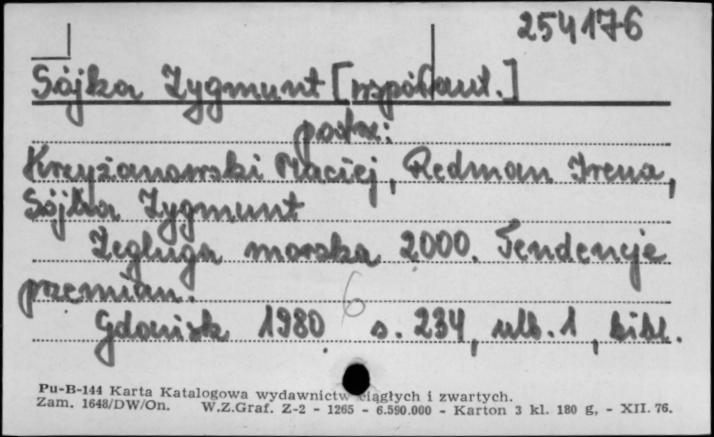 254176
Sójka Zygmunt [współaut.]
patrz:
Krzyżanowski Maciej, Redman Irena,
Sójka Zygmunt
Żegluga morska 2000. Tendencje
przemian.
6
Gdańsk 1980 s. 234, nlb. 1, bibl.
Pu-B-144 Karta Katalogowa wydawnictw ciągłych i zwartych.
Zam. 1648/DW/On. W.Z.Graf. Z-2 - 1265 - 6.590.000 - Karton 3 kl. 180 g, - XII. 76.